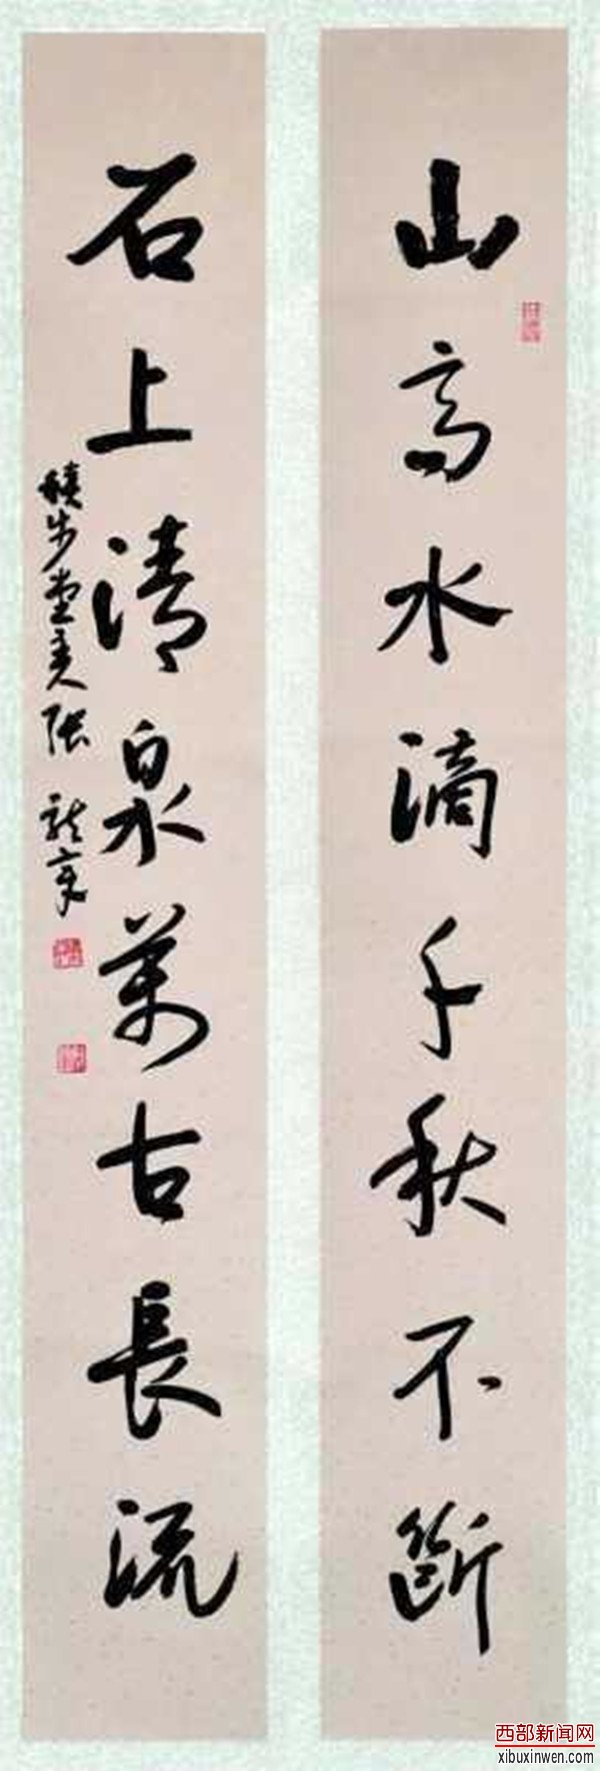 山高水滴千秋不斷
石上清泉萬古長流
積步堂主人張
西部新闻网
xibuxinwen.com